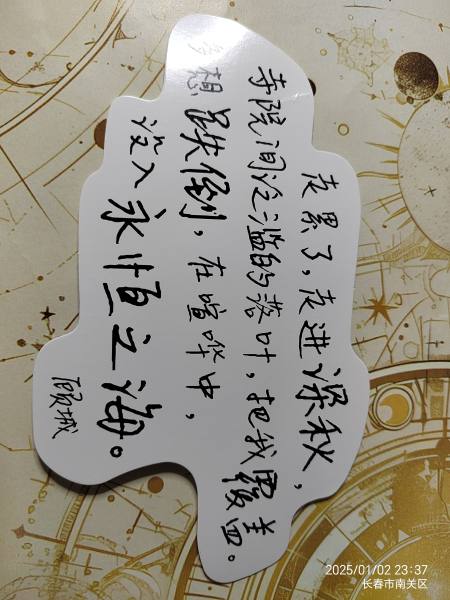 走累了，走进深秋，
寺院间泛滥的落叶，把我覆盖。
多想跌倒，在喧哗中，
没入永恒之海。
顾城
2025/01/02 23:37
长春市南关区